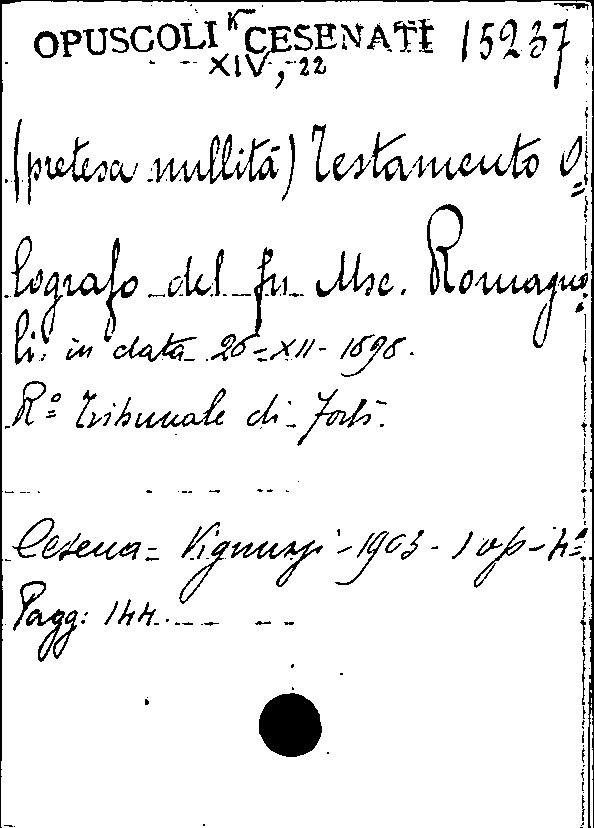 OPUSCOLI K CESENATI 15237
XIV, 22
(pretesa nullità) Testamento O=
lografo del fu Msc. Romagno=
li. in data 26=XII-1898.
Rº= Tribunale di Forlì.
Cesena= Vignuzzi-1903-1 op-4º=
Pagg: 144.